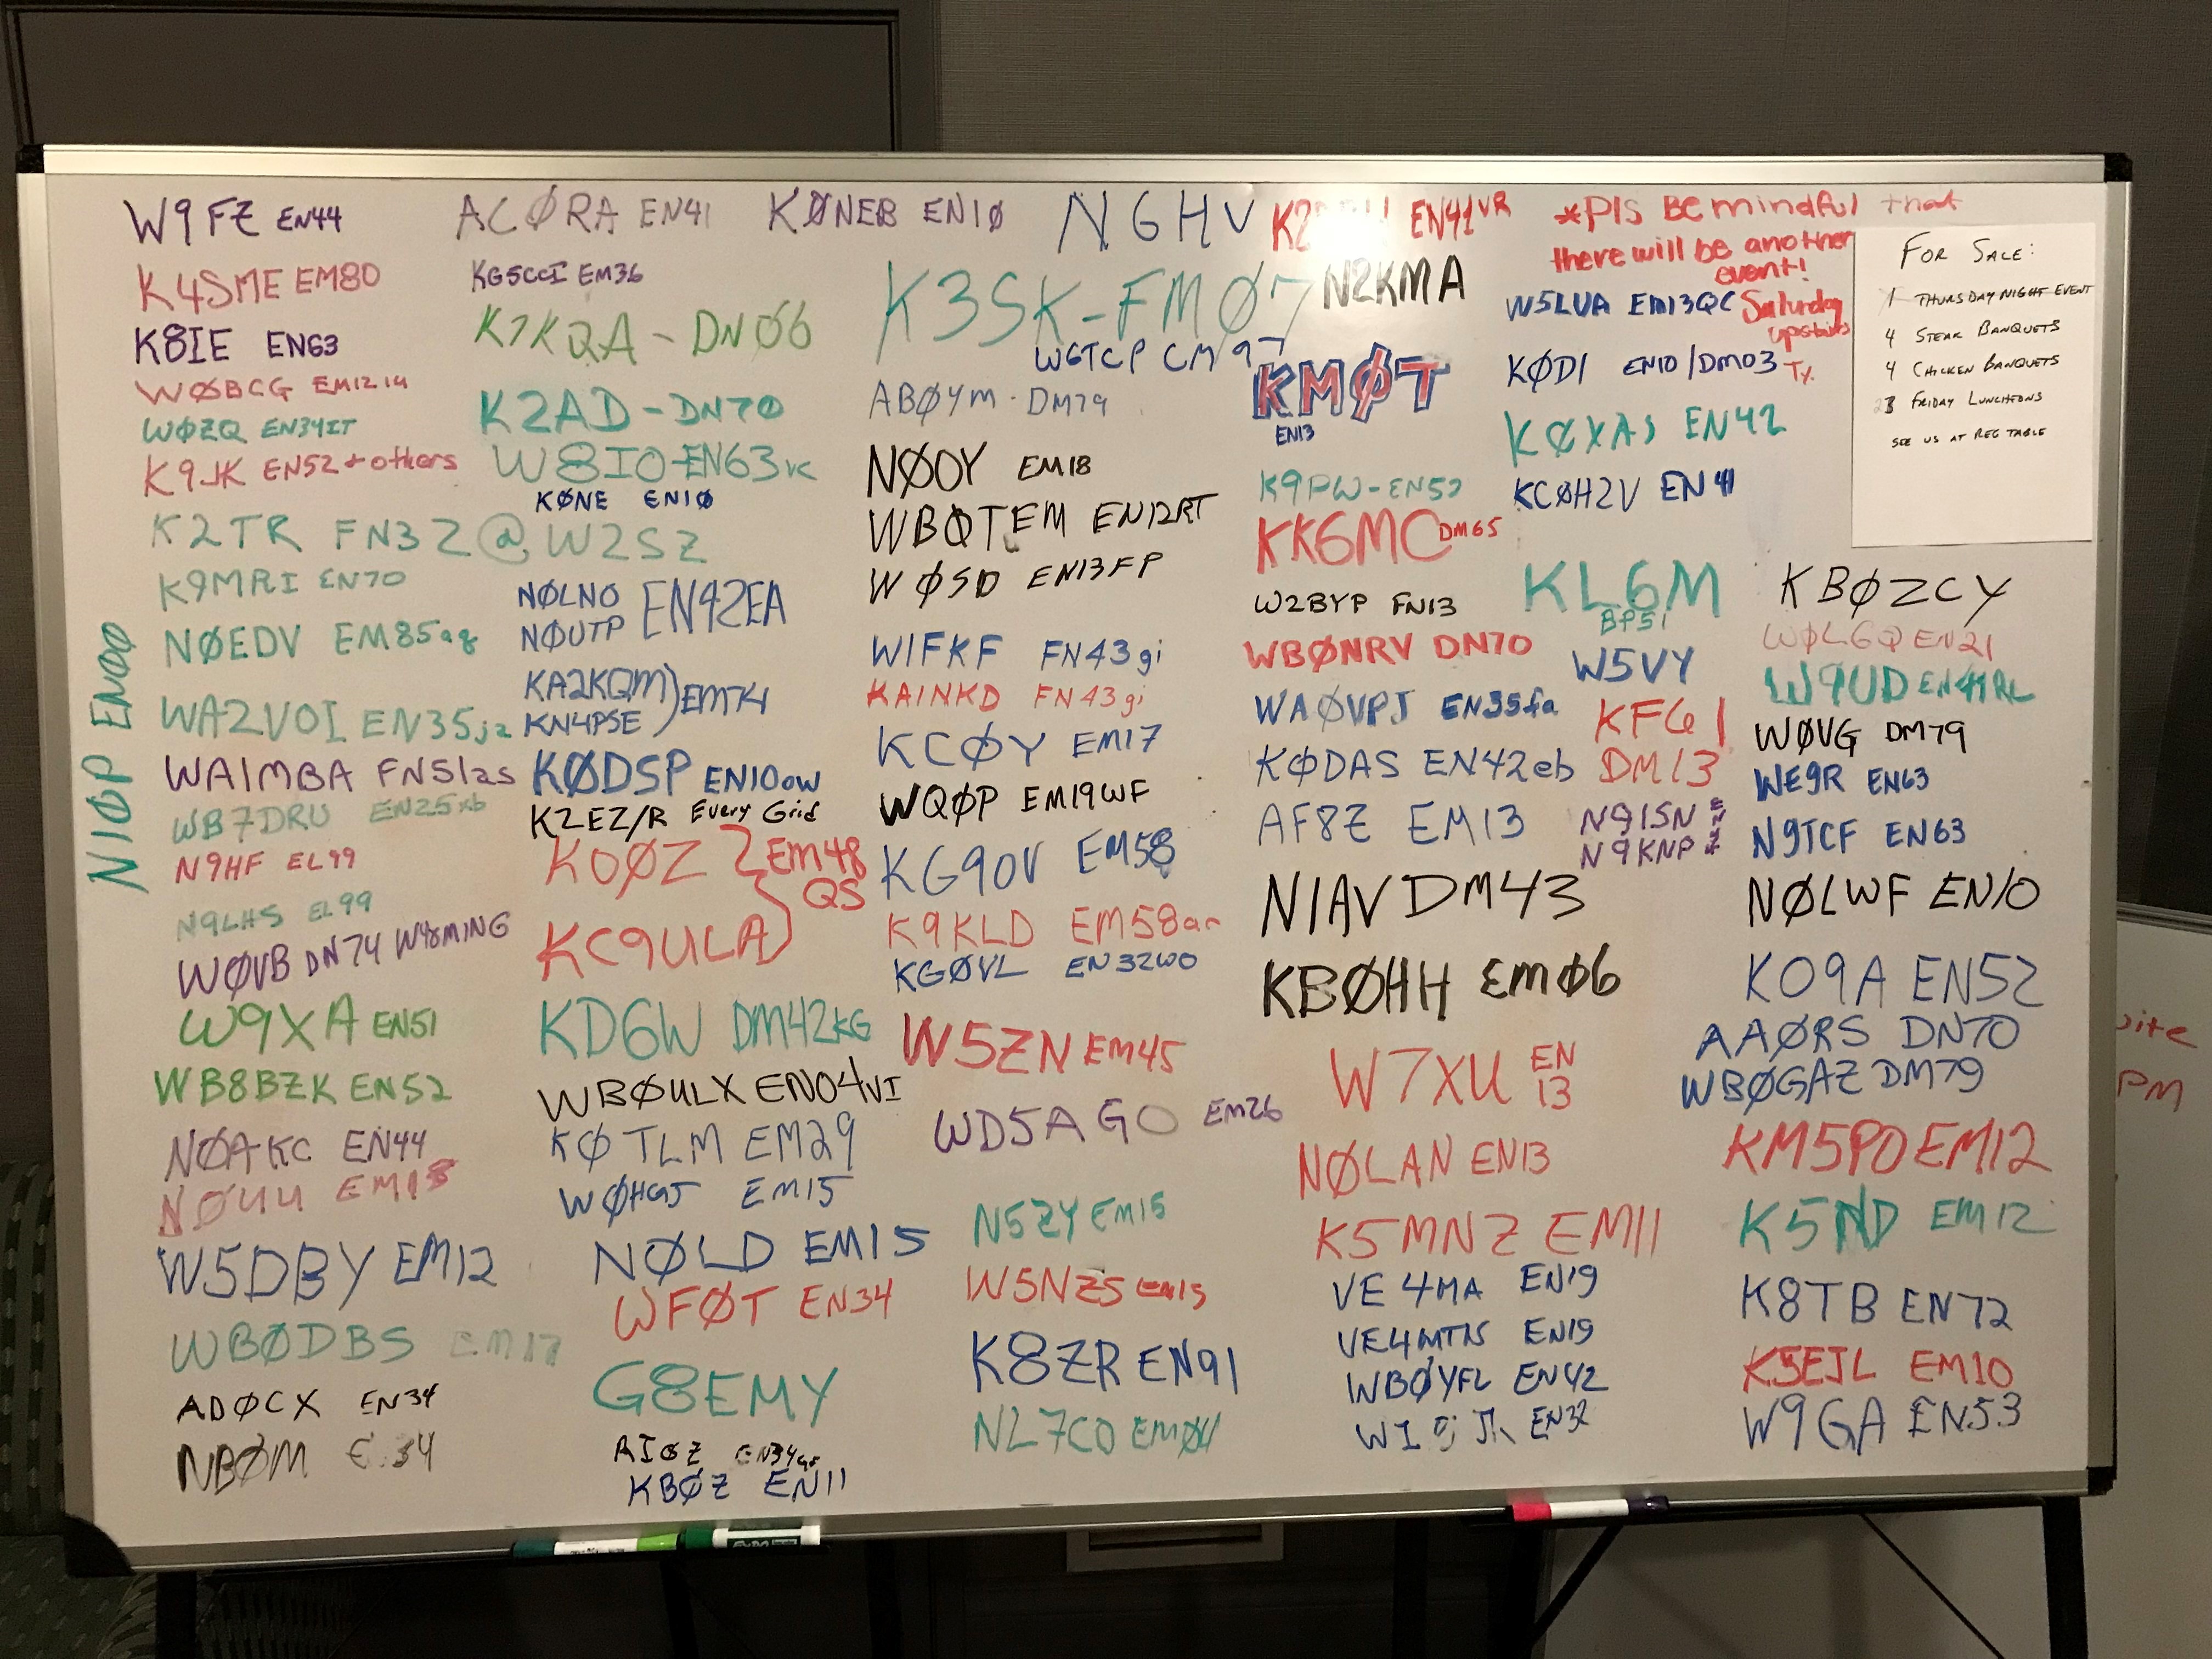 W9FZ EN44
K4SME EM80
K8IE EN63
WØBCG EM12
WØZQ EN34IT
K9JK EN52 + others
K2TR FN32 @ W2SZ
K9MRI EN70
NØEDV EM85aq
WA2VOI EN35jz
WA1MBA FN51as
WB7DRU EN25xb
N9HF EL99
N9LHS EL99
WØVB DN74 WYOMING
W9XA EN51
WB8BZK EN52
NØAKC EN44
NØUU EM18
W5DBY EM12
WBØDBS
ADØCX EN34
NBØM 34
N1ØP ENØØ
ACØRA EN41
KG5CCI EM36
K7KQA - DNØ6
K2AD - DN7Ø
W8IO - EN63
KØNE EN1Ø
NØLNO
NØUTP EN42EA
KA2KQM
KN4PSE ) EM74
KØDSP EN10ow
K2EZ/R Every Grid
KOØZ } EM48
QS
KC9ULA
KD6W DM42KG
WBØULX EN04VI
KØTLM EM29
WØHGJ EM15
NØLD EM15
WFØT EN34
G8EMY
KBØZ EN11
KØNEB EN1Ø
K3SK - FMØ7
W6TCP CM97
ABØYM - DM79
NØOY EM18
WBØTEM EN12RT
WØSD EN13FP
W1FKF FN43gi
KA1NKD FN43gi
KCØY EM17
WQØP EM19WF
KG9OV EM58
K9KLD EM58ar
KGØVL EN32WO
W5ZN EM45
WD5AGO EM26
N5ZY EM15
W5NZS EM15
K8ZR EN91
NL7CO EMØ4
N6HV
EN41VR
N2KMA
KMØT
EN13
K9PW - EN52
KK6MC DM65
W2BYP FN13
WBØNRV DN70
WAØVPJ EN35fa
KØDAS EN42eb
AF8Z EM13
N1AV DM43
KBØHH EMØ6
W7XU EN
13
NØLAN EN13
K5MNZ EM11
VE4MA EN19
VE4MTN EN19
WBØYFL EN42
EN32
*Pls Be mindful that
there will be another
event!
Saturday
upstairs
W5LUA EM13QC
Tx.
KØDI EN10/DM03
KØXAS EN42
KCØHZV EN41
KL6M
BP51
W5VY
KF6I
DM13
N9ISN
N9KNP
KBØZCY
WØLGQ EN21
W9UD EN41RL
WØVG DM79
WE9R EN63
N9TCF EN63
NØLWF EN10
KO9A EN52
AAØRS DN70
WBØGAZ DM79
KM5PO EM12
K5ND EM12
K8TB EN72
K5EJL EM10
W9GA EN53
FOR SALE:
1 THURSDAY NIGHT EVENT
4 STEAK BANQUETS
4 CHICKEN BANQUETS
3 FRIDAY LUNCHEONS
SEE US AT REG TABLE
PM